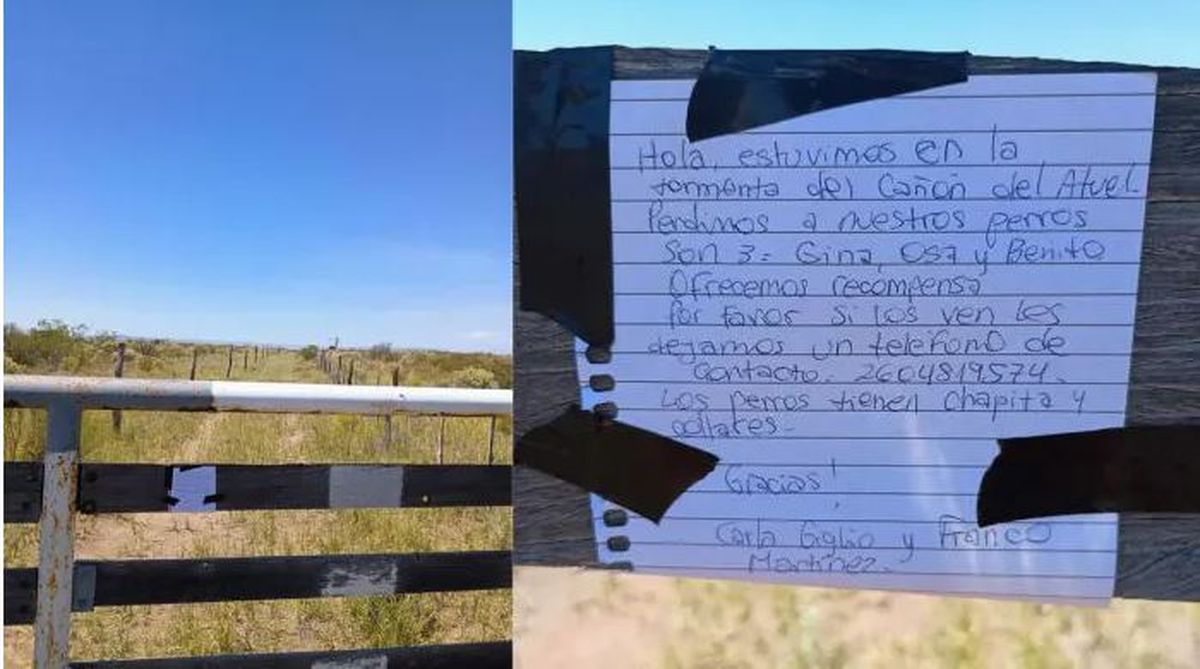 Hola, estuvimos en la
tormenta del Cañón del Atuel.
Perdimos a nuestros perros
Son 3: Gina, Osa y Benito
Ofrecemos recompensa
Por favor si los ven les
dejamos un teléfono de
contacto. 2604819574.
Los perros tienen chapita y
collares.
Gracias!
Carla Giglio y Franco
Martínez.